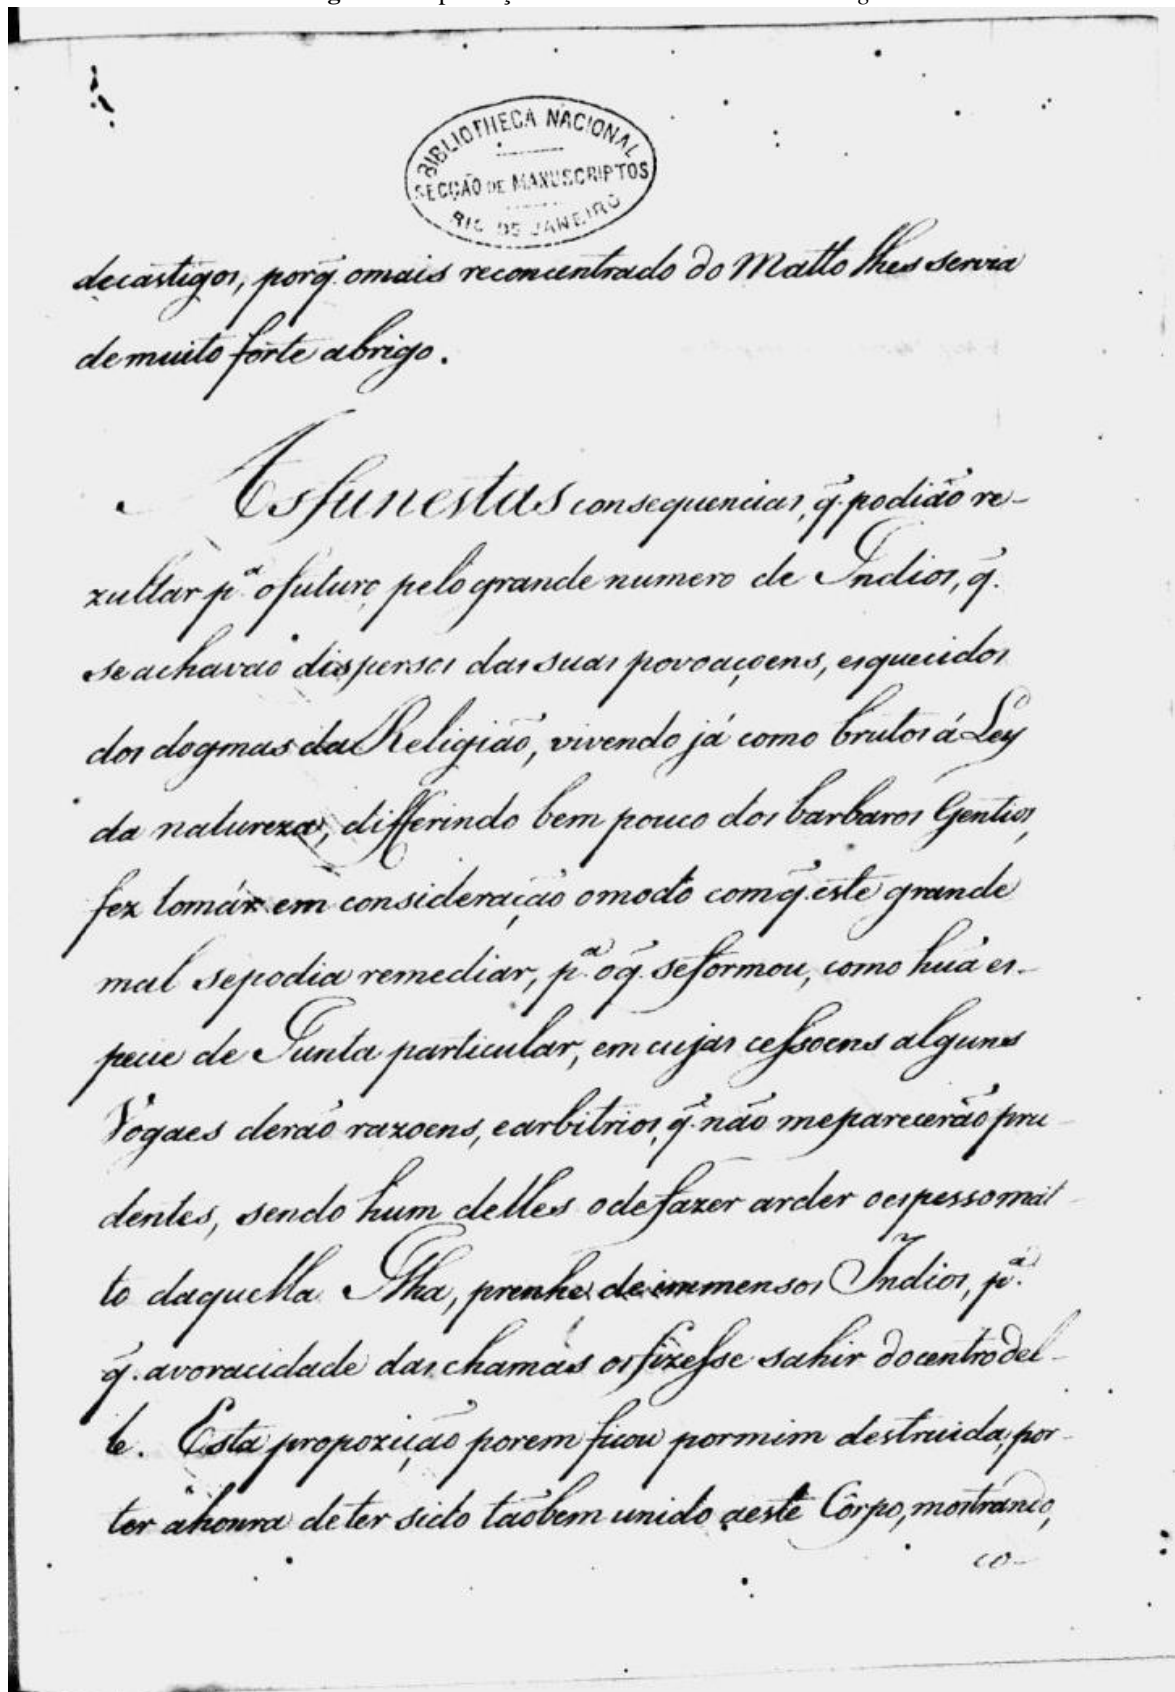 BIBLIOTHECA NACIONAL
SECÇÃO DE MANUSCRIPTOS
RIO DE JANEIRO
decastigos, porq̃. omais reconcentrado do Matto lhes servia
demuito forte abrigo.
As funestas consequencias, q̃. podião re-
zultar p.ª ofuturo, pelo grande numero de Indios, q̃.
se achavão dispersos das suas povoaçoens, esquecidos
dos dogmas da Religião, vivendo já como brutos á Ley
da natureza, differindo bem pouco dos barbaros Gentios,
fez tomár em consideração omodo comq̃. este grande
mal sepodia remediar, p.ª oq̃. seformou, como huã es-
pecie de Junta particular, em cujas cessoens alguns
Vogaes derão razoens, earbitrios, q̃. não meparecerão pru-
dentes, sendo hum delles odefazer arder oespessomat-
to daquella Ilha, prenhe de immensos Indios, p.ª
q̃. avoracidade das chamas osfizesse sahir docentrodel-
le. Esta propozição porem ficou pormim destruida, por-
ter ahonra deter sido taõbem unido aeste Côrpo, mostrando,
co-